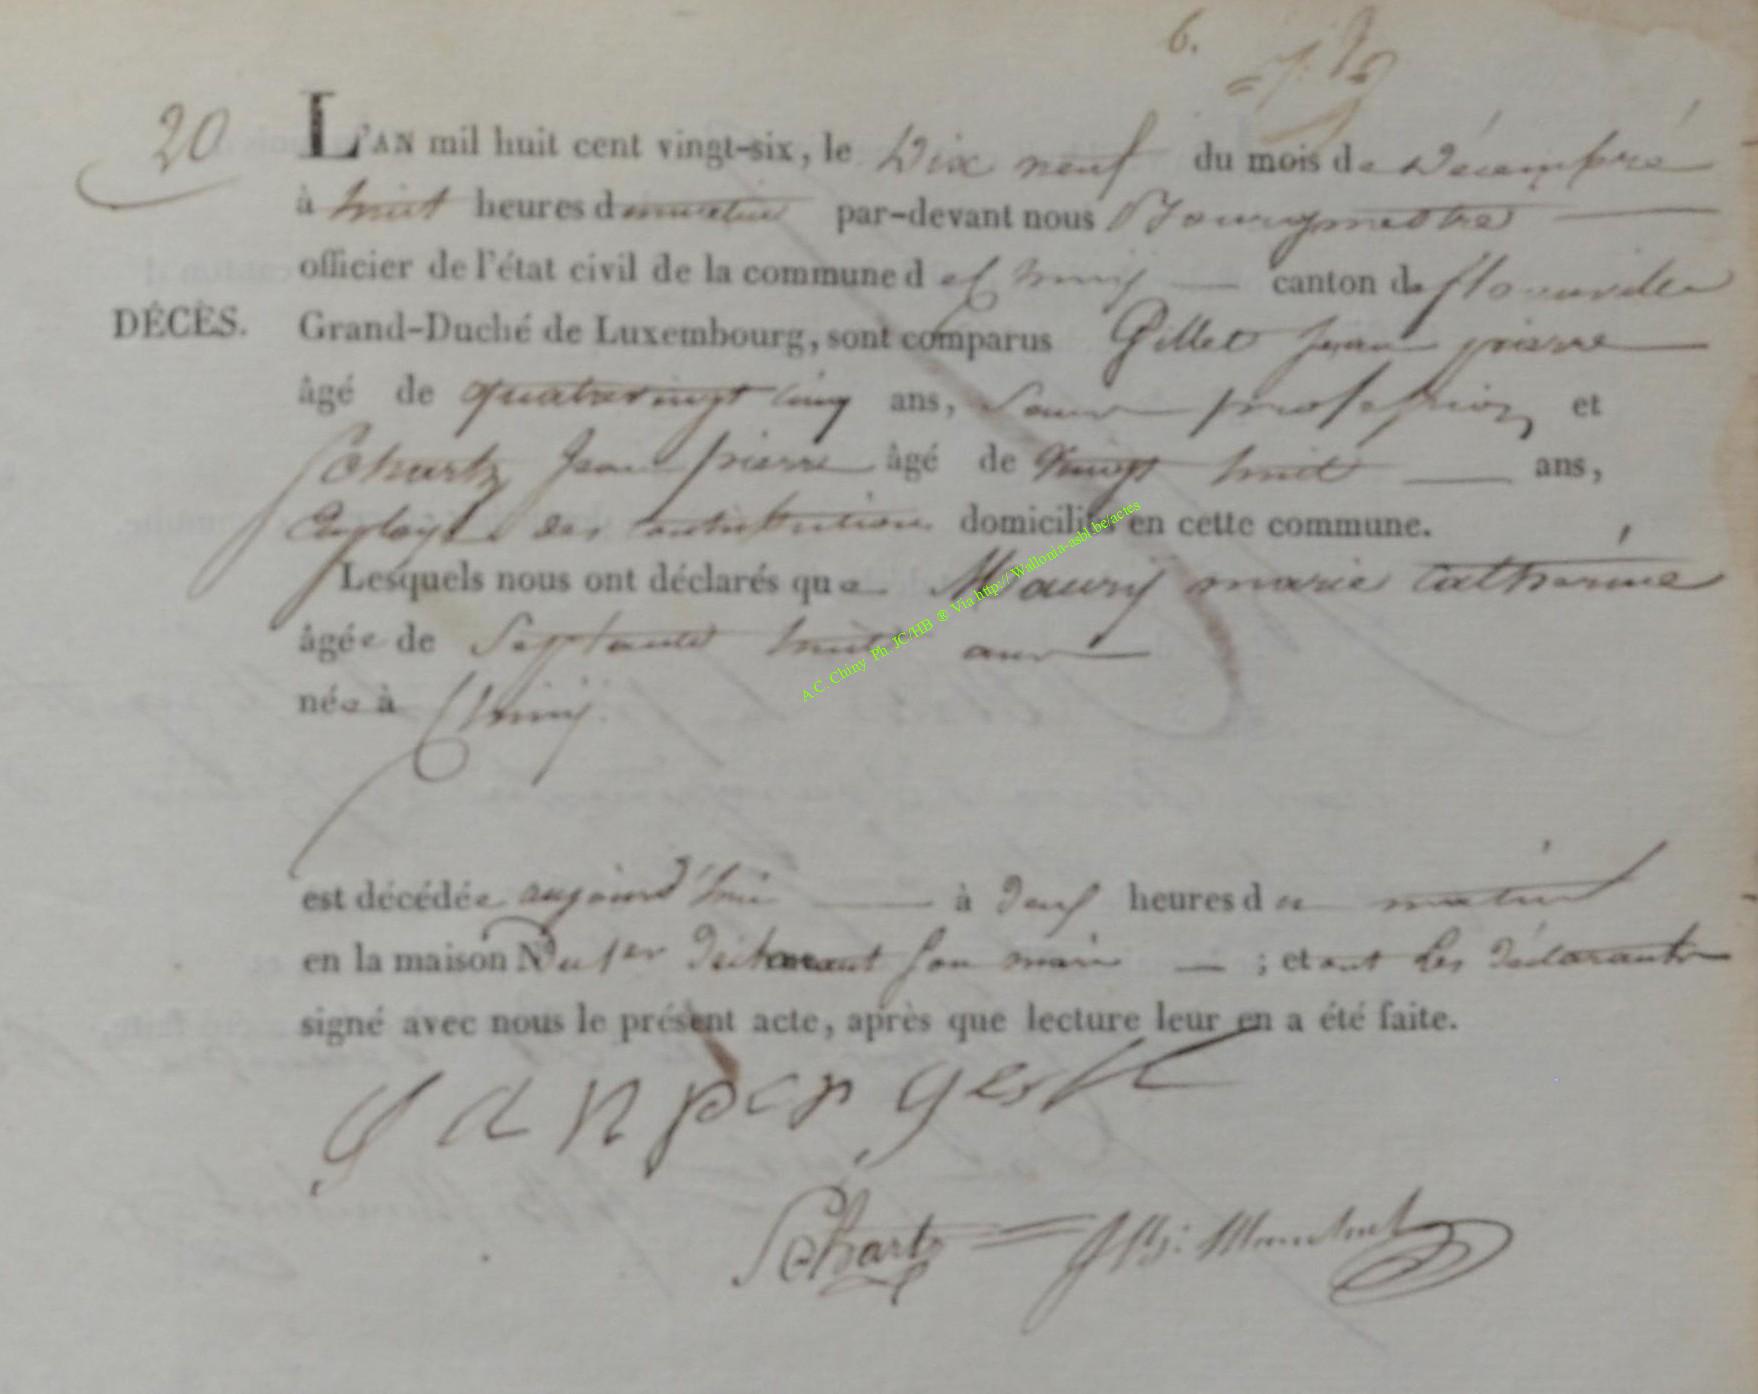 6.
20
L'AN mil huit cent vingt-six, le Dix neuf du mois de Décembre
à huit heures du matin par-devant nous Bourgmestre
officier de l'état civil de la commune de Chiny canton de florenville
DÉCÈS.
Grand-Duché de Luxembourg, sont comparus Gillet jean pierre
âgé de quatrevingt cinq ans, sans profession et
Schartz Jean pierre âgé de Vingt huit ans,
Employé des contributions domiciliés en cette commune.
Lesquels nous ont déclarés que Maury marie Catherine
âgée de Septante huit ans
née à Chiny.
est décédée aujourd'hui à deux heures du matin
en la maison du 1er déclarant son mari ; et ont les déclarants
signé avec nous le présent acte, après que lecture leur en a été faite.
Schartz
A.C. Chiny Ph. JC/HB ® Via http://Wallonia-asbl.be/actes